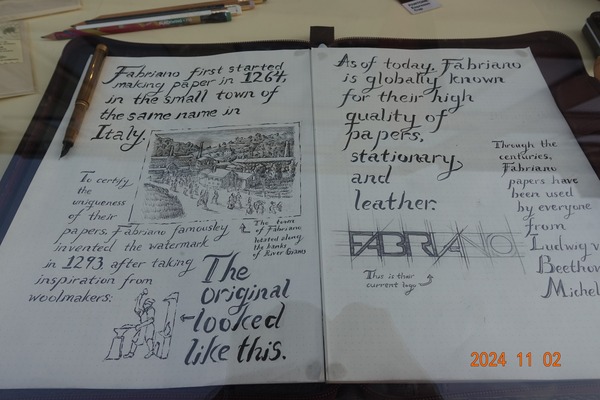 Fabriano first started
making paper in 1264,
in the small town of
the same name in
Italy.
To certify
the
uniqueness
of their
papers, Fabriano famousely
invented the watermark
in 1293 after taking
inspiration from
woolmakers:
The town
of Fabriano
hosted along
the banks
of River Giano
The
original
looked
like this.
As of today, Fabriano
is globally known
for their high
quality of
papers,
stationary
and
leather.
FABRIANO
This is their
current logo
Through the
centuries,
Fabriano
papers have
been used
by everyone
from
Ludwig v
Beethov
Michel
2024 11 02